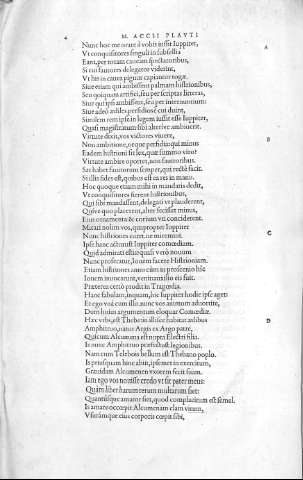 4 M. ACCII PLAVTI
Nunc hoc me orare à vobis iussit Iuppiter, A
Vt conquisitores singuli in subsellia
Eant, per totam caueam spectatoribus,
Si cui fautores delegatos viderint,
Vt his in cauea pignus capiantur togæ.
Siue qui ambissent palmam histrionibus,
Seu quoiquam artifici, seu per scriptas literas,
Siue qui ipse ambissent, seu per internuntium:
Siue adeo ædiles perfidiose cui duint,
Similem rem ipse in legem iussit esse Iuppiter,
Quasi magistratum sibi alteri ve ambiuerit.
Virtute dixit, vos victores viuere, B
Non ambitione, neque perfidia: qui minus
Eadem histrioni sit lex, quæ summo viro?
Virtute ambire oportet, non fauitoribus.
Sat habet fauitorum semper, qui rectè facit.
Si illis fides est, quibus est ea res in manu.
Hoc quoque etiam mihi in mandatis dedit,
Vt conquisitores fierent histrionibus,
Qui sibi mandassent, delegati vt plauderent,
Quiue quo placeret, alter fecisset minus,
Eius ornamenta & corium vti conciderent.
Mirari nolim vos, quapropter Iuppiter
Nunc histriones curet, ne miremini. C
Ipse hanc acturust Iuppiter comœdiam.
Quid admirati estis? quasi verò nouum
Nunc proferatur, Iouem facere histrioniam.
Etiam histriones anno cùm in proscenio hîc
Iouem inuocarunt, venit: auxilio eis fuit.
Præterea certò prodit in Tragœdia.
Hanc fabulam, inquam, hic Iuppiter hodie ipse aget:
Et ego vnà cum illo. nunc vos animum aduortite,
Dum huius argumentum eloquar Comœdiæ.
Hæc vrbs, est Thebæ: in illisce habitat ædibus D
Amphitruo, natus Argis ex Argo patre,
Quicum Alcumena est nupta Electri filia.
Is nunc Amphitruo præfectust legionibus.
Nam cum Telebois bellum est Thebano poplo.
Is priusquam hinc abiit, ipsemet in exercitum,
Grauidam Alcumenen vxorem fecit suam.
Iam ego vos nouisse credo vt sit pater meus:
Quàm liber harum rerum multarum siet:
Quantúsque amator siet, quod complacitum est semel.
Is amare occœpit Alcumenam clam virum,
Vsurámque eius corporis cœpit sibi,